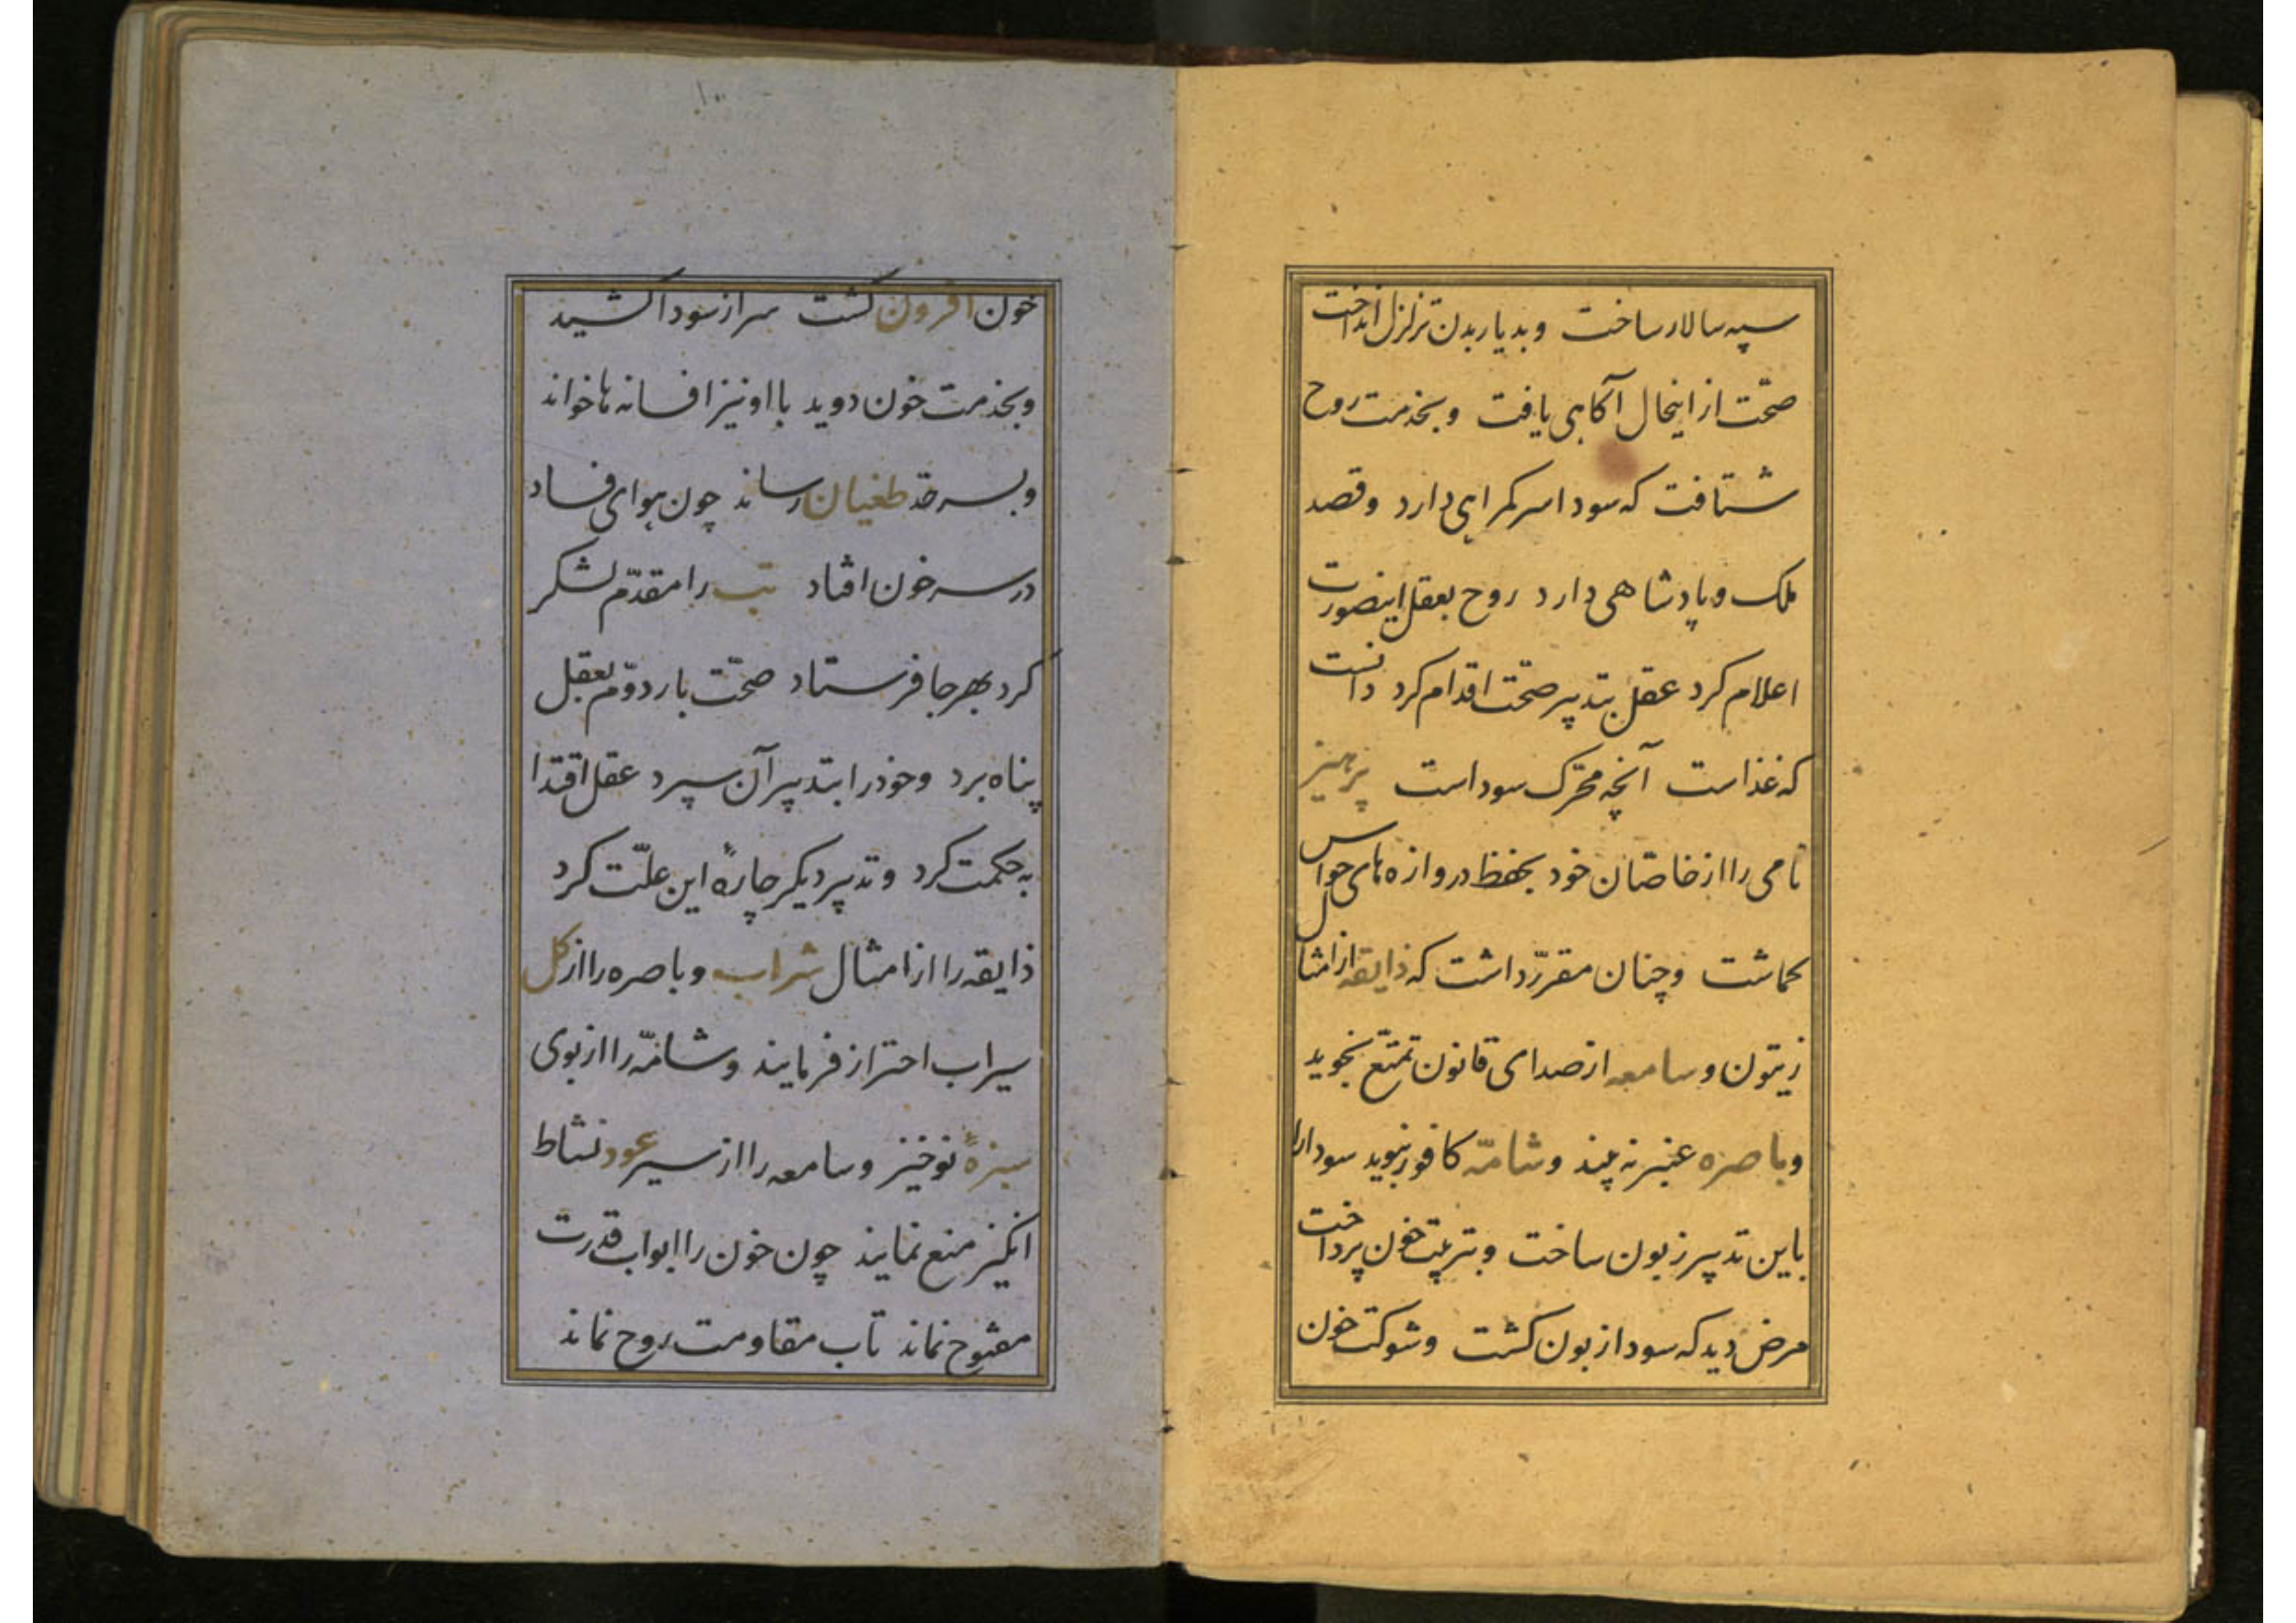 سپه سالار ساخت وبدیار بدن تزلزل انداخت
صحّت از اینحال آکاهی یافت وبخدمت روح
شتافت که سودا سر کمراهی دارد وقصد
ملک وپادشاهی دارد روح بعقل اینصورت
اعلام کرد عقل بتدپیر صحّت اقدام کرد دانست
که غذاست آنچه محرّک سوداست پرهیز
نامی را از خاصّان خود بحفظ دروازه های حواس
کماشت وچنان مقرّر داشت که ذایقه از امثال
زیتون وسامعه از صدای قانون تمتّع نجوید
وباصره عنبرنه پیند وشامّه کافور نبوید سودا را
باین تدپیر زبون ساخت وبتربیت خون پرداخت
مرض دید که سودا زبون کشت وشوکت خون
۱۰۰
خون افزون کشت سر از سودا کشید
وبخدمت خون دوید با او نیز افسانه ها خواند
وبسرحدّ طغیان رساند چون هوای فساد
در سر خون افتاد تب را مقدّم لشکر
کرد بهر جا فرستاد صحّت بار دوّم بعقل
پناه برد وخود را بتدپیر آن سپرد عقل اقتدا
به حکمت کرد وتدپیر دیکر چارهٔ این علّت کرد
ذایقه را از امثال شراب وباصره را از کل
سیراب احتراز فرمایند وشامّه را از بوی
سبزهٔ نوخیز وسامعه را از سیر عود نشاط
انکیز منع نمایند چون خون را ابواب قدرت
مفتوح نماند تاب مقاومت روح نماند